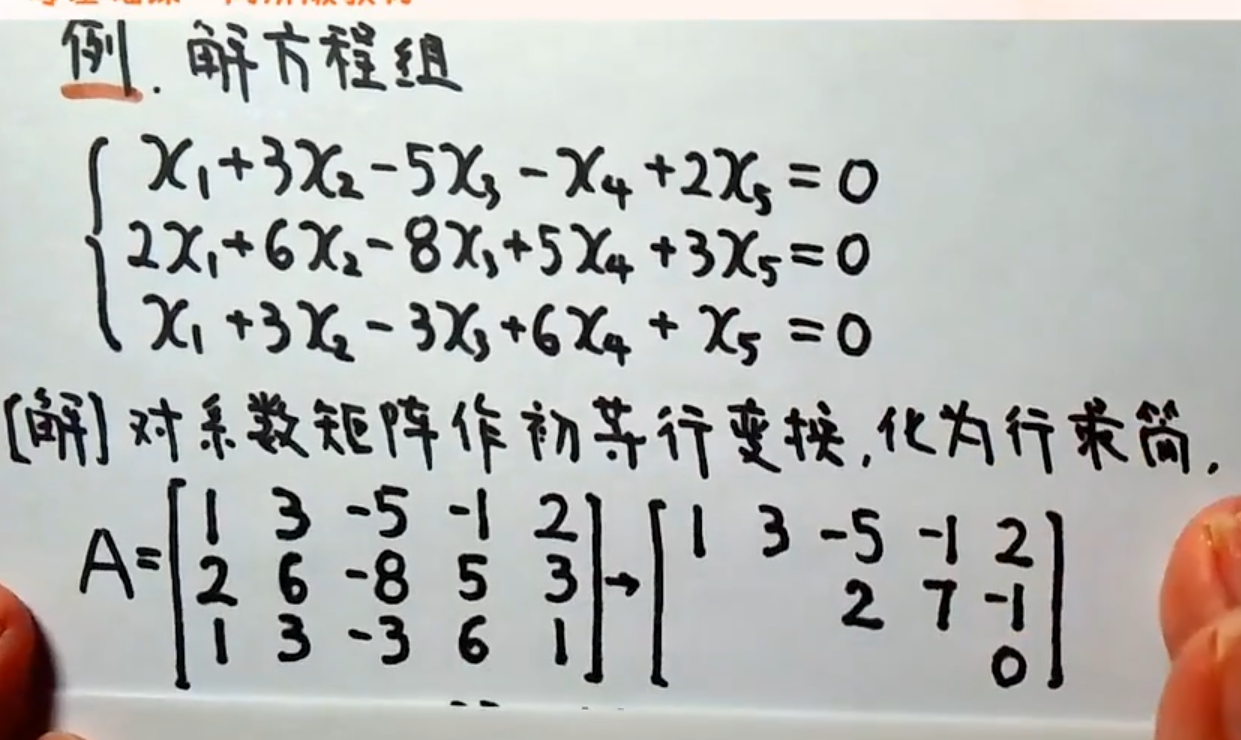 例. 解方程组
x₁+3x₂-5x₃-x₄+2x₅=0
2x₁+6x₂-8x₃+5x₄+3x₅=0
x₁+3x₂-3x₃+6x₄+x₅=0
[解]对系数矩阵作初等行变换,化为行最简,
A=[1 3 -5 -1 2 → [1 3 -5 -1 2
2 6 -8 5 3 2 7 -1
1 3 -3 6 1] 0]